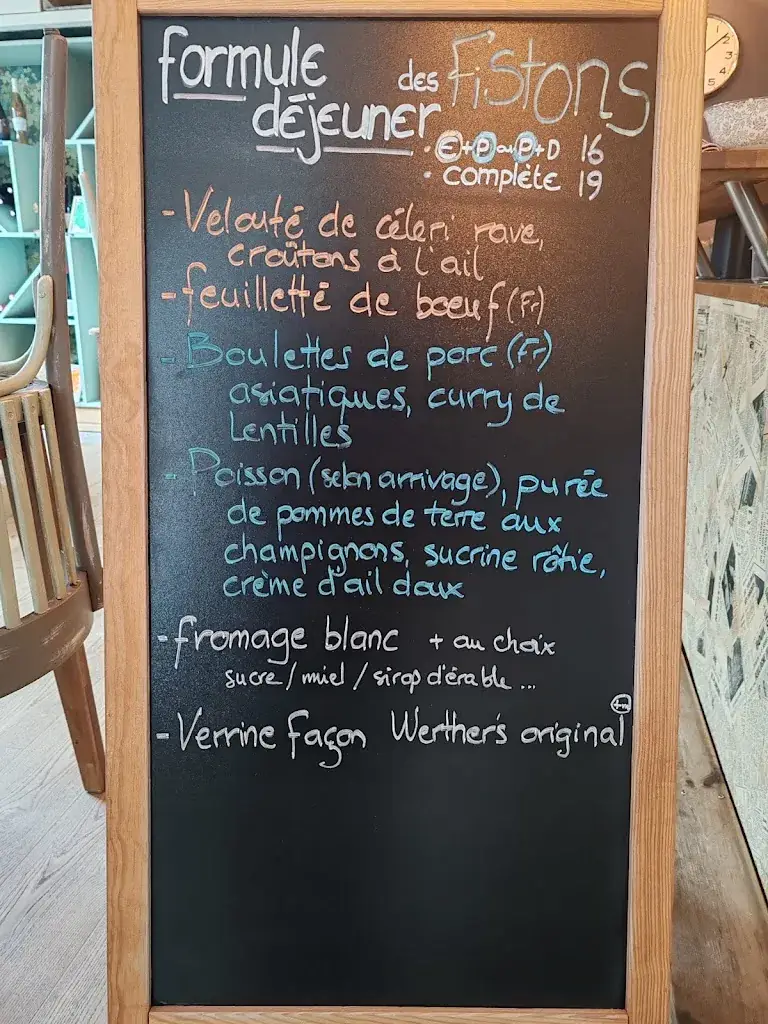 formule des Fistons
déjeuner
· E+P ou P+D 16
· complète 19
- Velouté de céleri rave,
croûtons à l'ail
- feuilletté de bœuf (Fr)
- Boulettes de porc (Fr)
asiatiques, curry de
Lentilles
- Poisson (selon arrivage), purée
de pommes de terre aux
champignons, sucrine rôtie,
crème d'ail doux
- fromage blanc + au choix
sucre / miel / sirop d'érable ...
- Verrine façon Werther's original